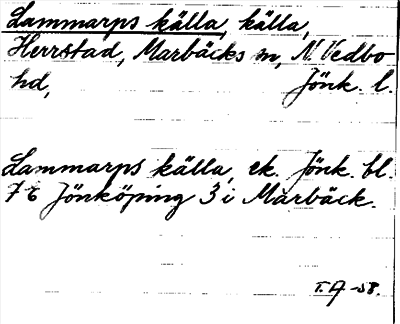 Lammarps källa, källa,
Herrstad, Marbäcks sn, N. Vedbo
hd, Jönk. l.
Lammarps källa, ek. Jönk. bl.
7 E Jönköping 3 i Marbäck.
-58.